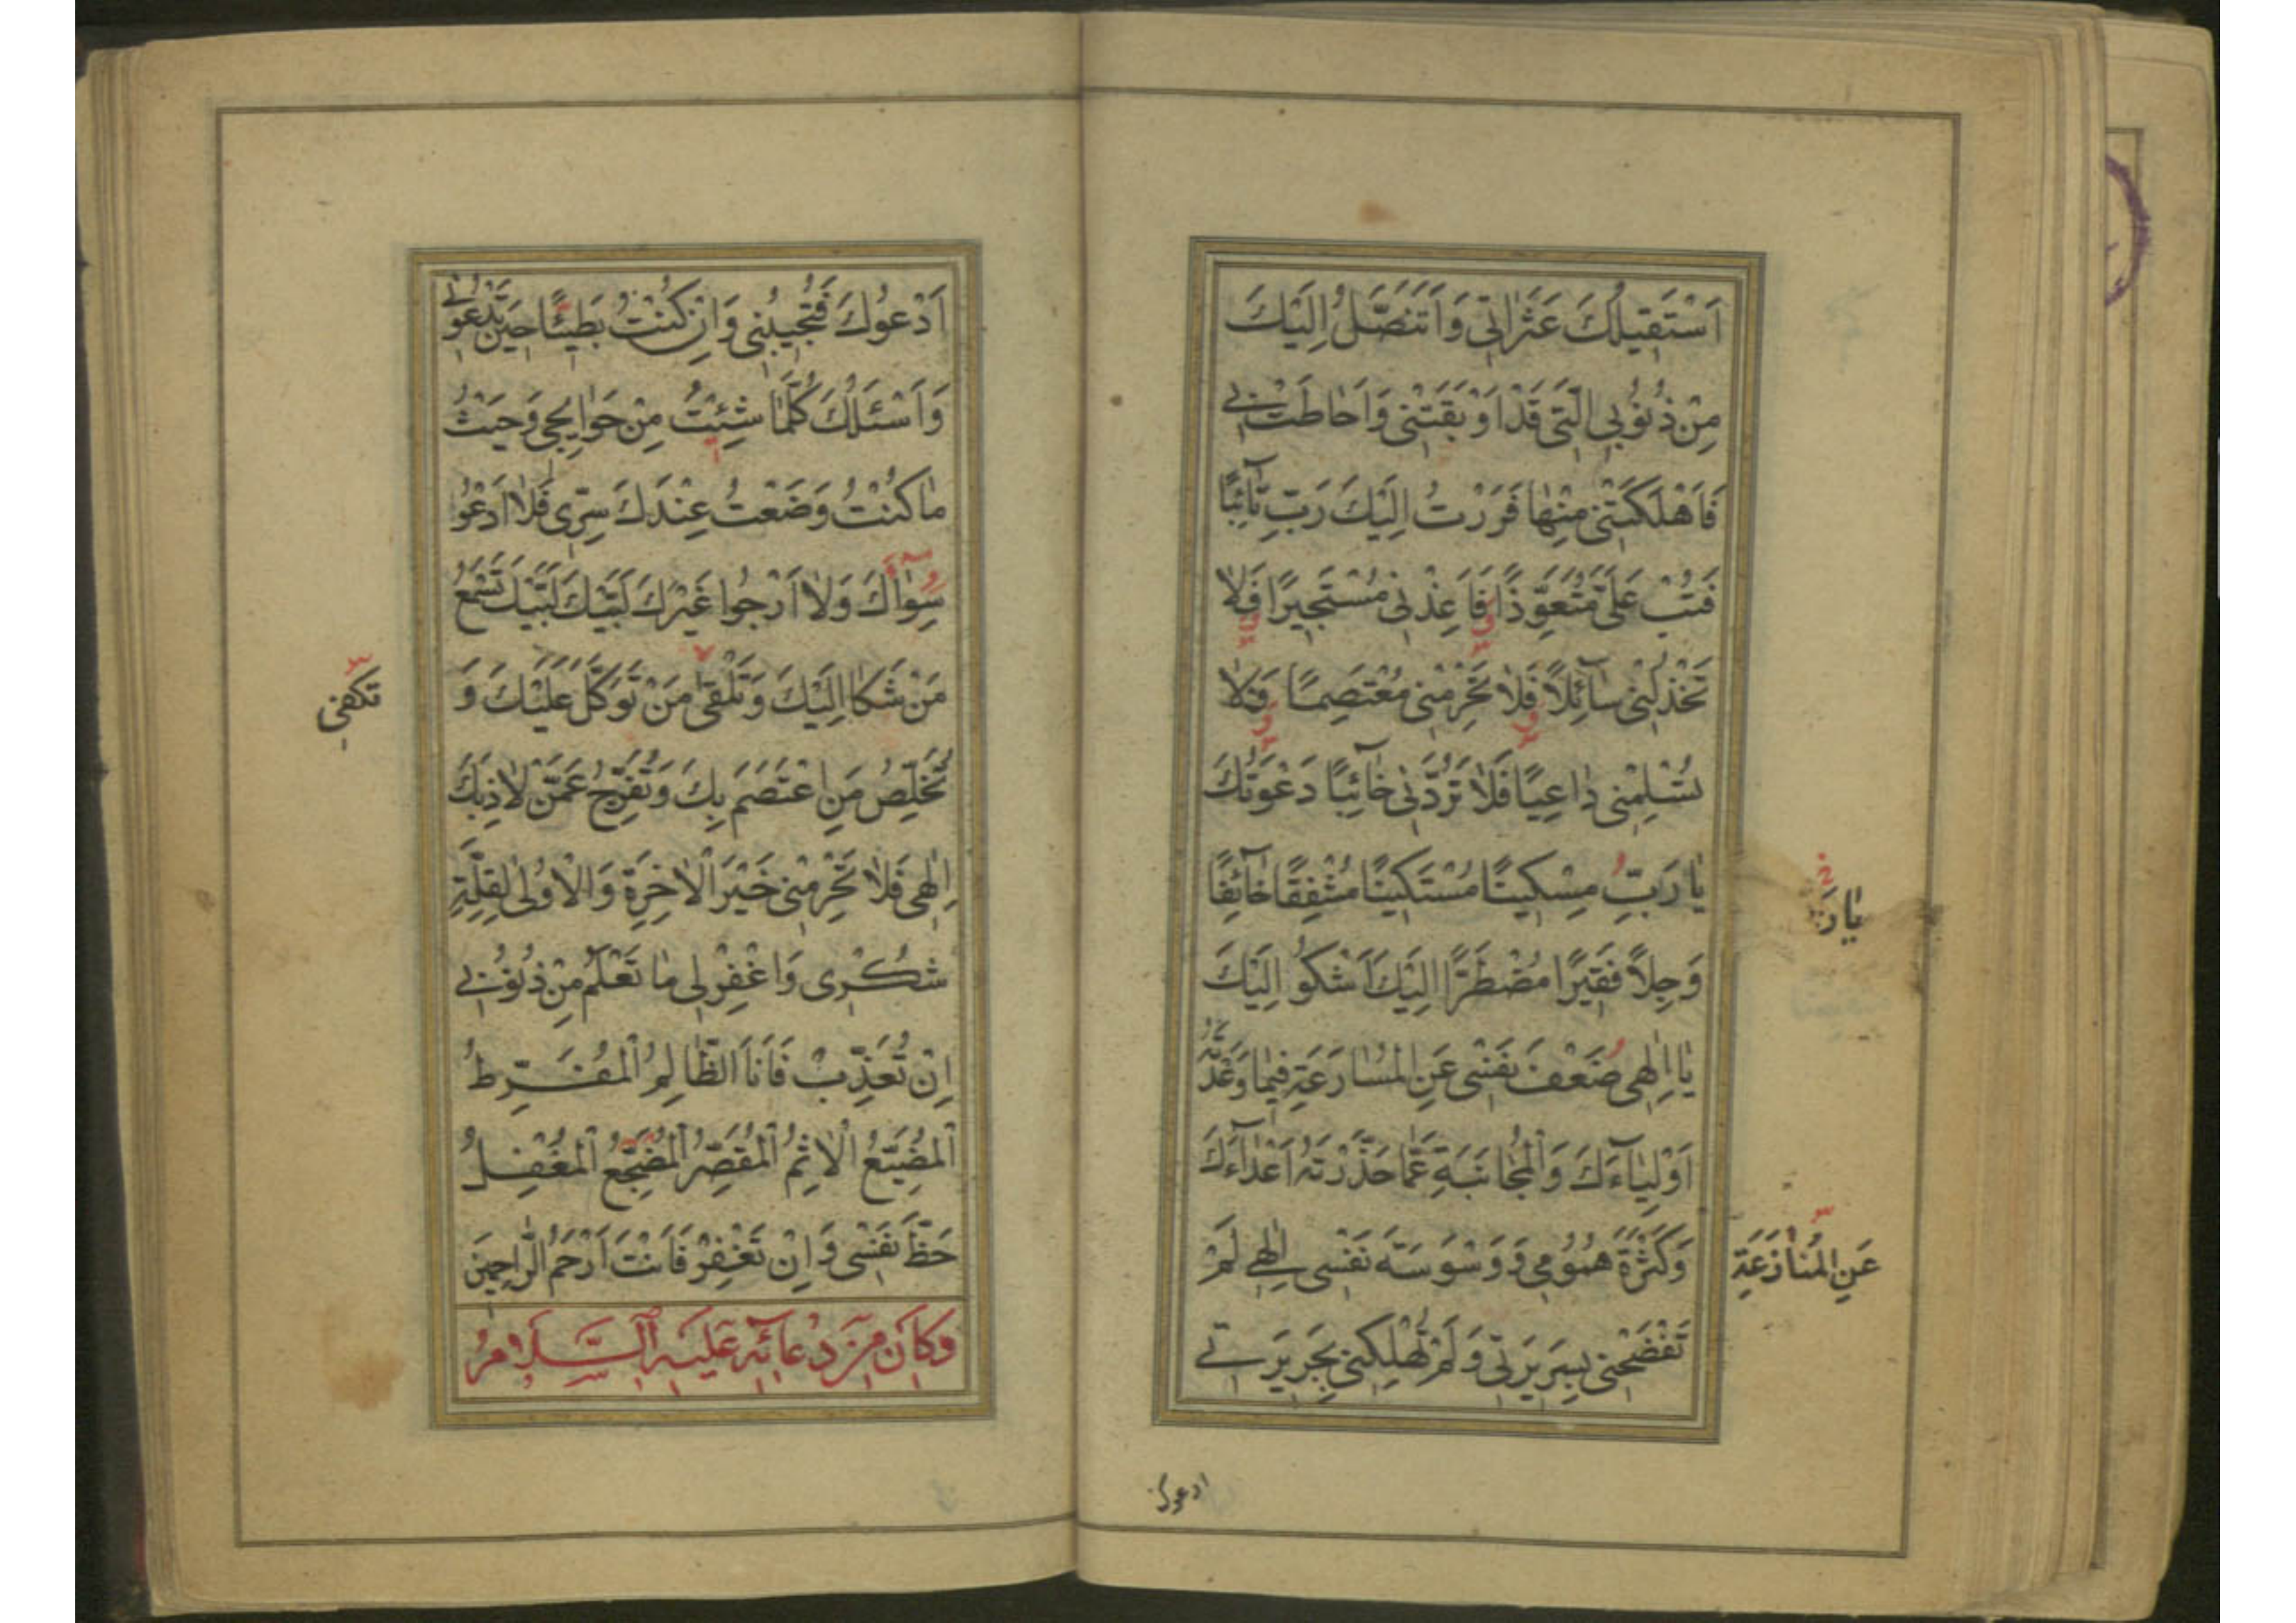 اَسْتَقيلُكَ عَثَراتي وَاَتَنَصَّلُ اِلَيْكَ
مِنْ ذُنُوبِي الَّتي قَدْ اَوْبَقَتْني وَاَحاطَتْ بي
فَاَهْلَكَتْني مِنْها فَرَرْتُ اِلَيْكَ رَبِّ تآئِبًا
فَتُبْ عَلَيَّ مُتَعَوِّذًا فَاَعِذْني مُسْتَجيرًا فَلا
تَخْذُلْني سآئِلاً فَلا تَحْرِمْني مُعْتَصِمًا فَلا
تُسْلِمْني داعِيًا فَلا تَرُدَّني خآئِبًا دَعَوْتُكَ
يا رَبِّ مِسْكينًا مُسْتَكينًا مُشْفِقًا خآئِفًا
وَجِلاً فَقيرًا مُضْطَرًّا اِلَيْكَ اَشْكُو اِلَيْكَ
يا اِلهي ضَعْفَ نَفْسي عَنِ الْمُسارَعَةِ فيما وَعَدْتَهُ
اَوْلِيآءَكَ وَالْمُجانَبَةِ عَمّا حَذَّرْتَهُ اَعْدآءَكَ
وَكَثْرَةَ هُمُومي وَوَسْوَسَةَ نَفْسي اِلهي لَمْ
تَفْضَحْني بِسَريرَتي وَلَمْ تُهْلِكْني بِجَريرَتي
عَنِ الْمُنازَعَةِ
ادعوك
اَدْعُوكَ فَتُجيبُني وَاِنْ كُنْتُ بَطيئًا حينَ تَدْعُوني
وَاَسْئَلُكَ كُلَّما شِئْتُ مِنْ حَوايِجي وَحَيْثُ
ما كُنْتُ وَضَعْتُ عِنْدَكَ سِرّي فَلا اَدْعُو
سِواكَ وَلا اَرْجُوا غَيْرَكَ لَبَّيْكَ لَبَّيْكَ تَسْمَعُ
مَنْ شَكا اِلَيْكَ وَتَلْقى مَنْ تَوَكَّلَ عَلَيْكَ وَ
تُخَلِّصُ مَنِ اعْتَصَمَ بِكَ وَتُفَرِّجُ عَمَّنْ لاذَ بِكَ
اِلهي فَلا تَحْرِمْني خَيْرَ الْاخِرَةِ وَالْاُولى لِقِلَّةِ
شُكْري وَاغْفِرْ لي ما تَعْلَمُ مِنْ ذُنُوبي
اِنْ تُعَذِّبْ فَاَنَا الظّالِمُ الْمُفَرِّطُ
الْمُضَيِّعُ الْاثِمُ الْمُقَصِّرُ الْمُضَجِّعُ الْمُغْفِلُ
حَظَّ نَفْسي وَاِنْ تَغْفِرْ فَاَنْتَ اَرْحَمُ الرّاحِمينَ
وَكانَ مِنْ دُعآئِهِ عَلَيْهِ السَّلامُ